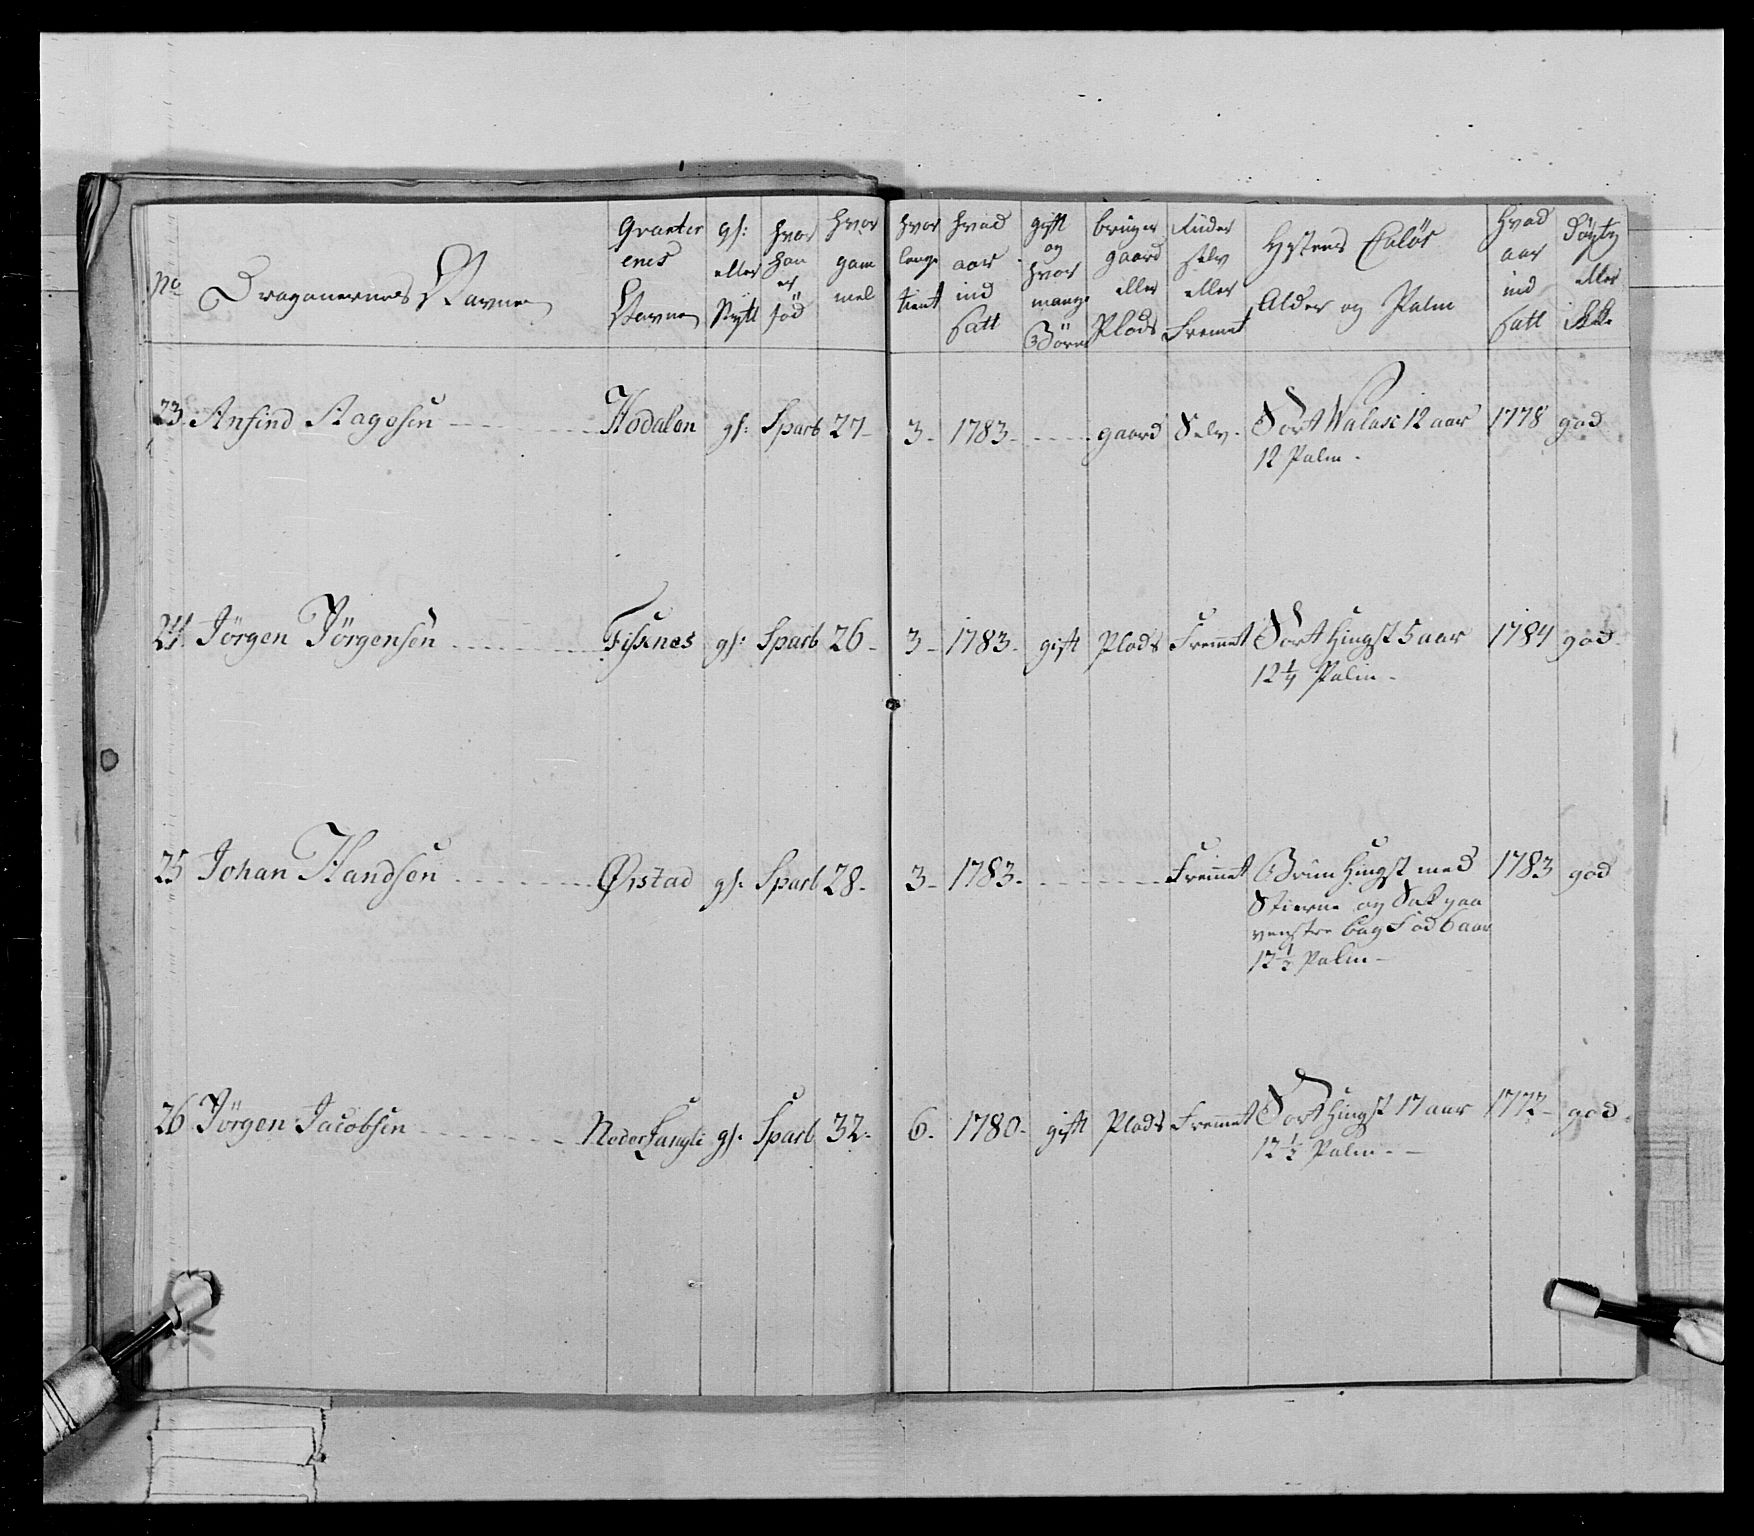 No Dragonernes Navne
Qvarterenes Navne
gl: eller Nytt
hvor han er född
hvor gammel
hvor lenge tient
hvad aar ind satt
gift og hvor mange Börn
bruger gaard eller Plads
Riider selv eller Fremet
Hestens Couleur Alder og Palm
hvad aar ind satt
dögtig eller ikke
23 Anfind Aagesen Hodalen gl: Sparb 27 3 1783 gaard Selv Sort Walack 12 aar 1778 god
12 Palm
24 Jörgen Jörgensen Fisknes gl: Sparb 26 3 1783 gift Plads Fremet Sort Hingst 5 aar 1784 god
12 1/4 Palm
25 Johan Handsen Øistad gl: Sparb 28 3 1783 Fremet Bruun Hingst med 1783 god
Stierne og Sok paa
venstre bag Fod 6 aar
12 1/2 Palm
26 Jörgen Jacobsen Neder Langli gl: Sparb 32 6 1780 gift Plads Fremet Sort Hingst 17 aar 1772 god
12 1/2 Palm